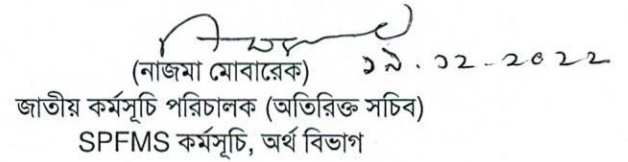 (নাজমা মোবারেক) ১৯.১২.২০২২
জাতীয় কর্মসূচি পরিচালক (অতিরিক্ত সচিব)
SPFMS কর্মসূচি, অর্থ বিভাগ